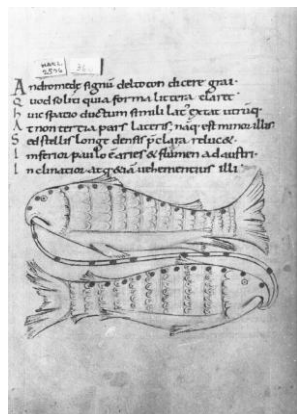 HARL.
2506
36
Andromede signũ deltoton dicere grai
Quod soliti quia forma littera claret
huic spatio ductum simili lat' extat utrũq;
At non tertia pars lateris, nãq; est minor illis
Sed stellis longe densis p̄clara reluc&
Inferior paulo ē aries & flumen ad austri
Inclinatior atq; &iā uehementius illi